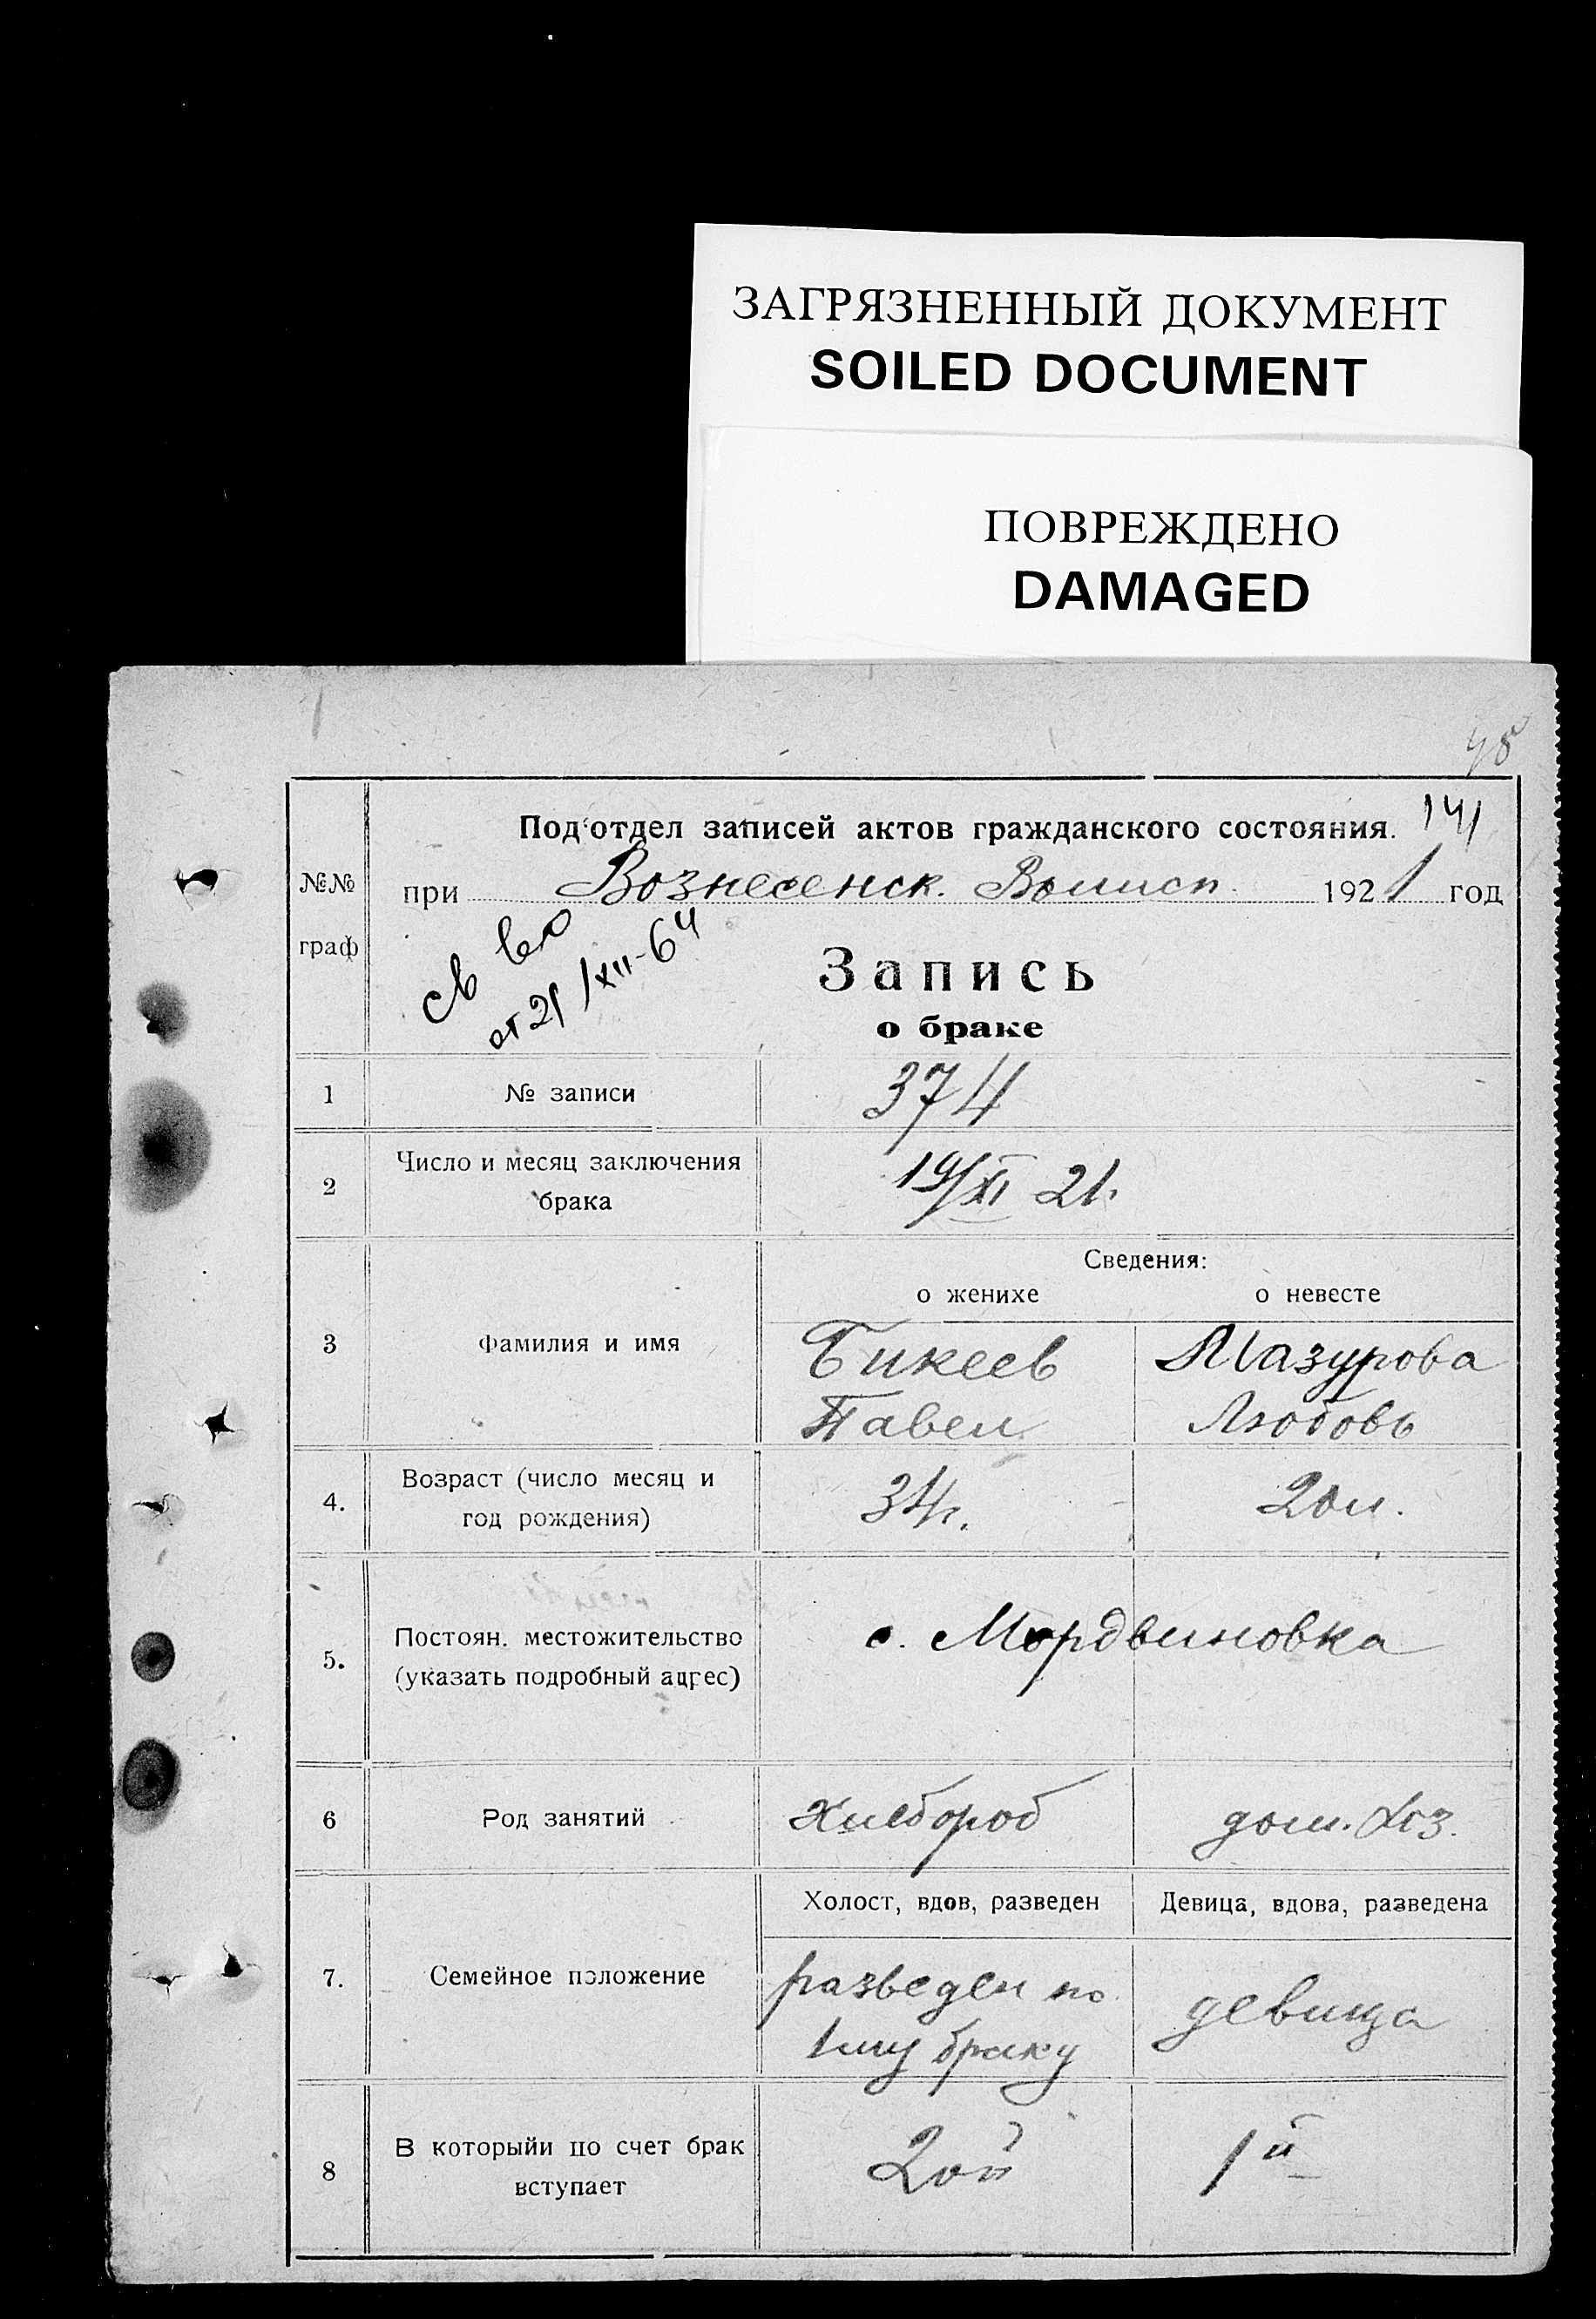 ЗАГРЯЗНЕННЫЙ ДОКУМЕНТ
SOILED DOCUMENT
ПОВРЕЖДЕНО
DAMAGED
141
Под‘отдел записей актов гражданского состояния.
№№ граф
при Вознесенск. Волисп. 1921 год
св во
от 21/XII-64
Запись
о браке
1 № записи 374
2 Число и месяц заключения
брака
19/XI 21.
Сведения:
о женихе о невесте
3 Фамилия и имя
Бикеев Мазурова
Павел Любовь
4. Возраст (число месяц и
год рождения)
34г. 20л.
5. Постоян. местожительство
(указать подробный адрес)
с. Мордвиновка
6 Род занятий хлебороб дом. хоз.
Холост, вдов, разведен Девица, вдова, разведена
7. Семейное положение
разведен по девица
1му браку
8 В которыйи по счет брак
вступает
2ой 1й